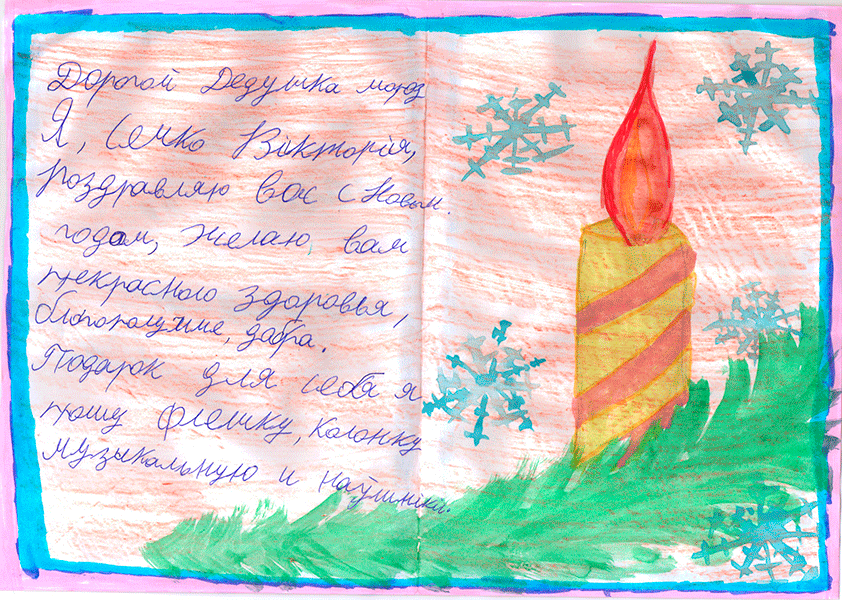 Дорогой Дедушка мороз
Я, Сечко Вікторія,
поздравляю вас с Новым
годом, желаю вам
прекрасного здоровья,
благополучие, добра.
Подарок для себя я
прошу флешку, колонку
музыкальную и наўшники.